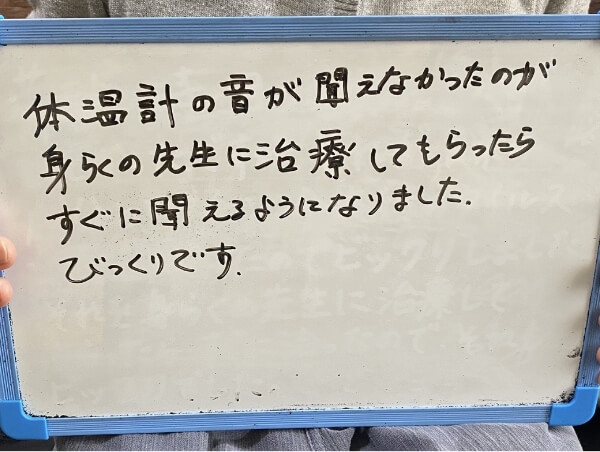 体温計の音が聞えなかったのが
身らくの先生に治療してもらったら
すぐに聞えるようになりました.
びっくりです.